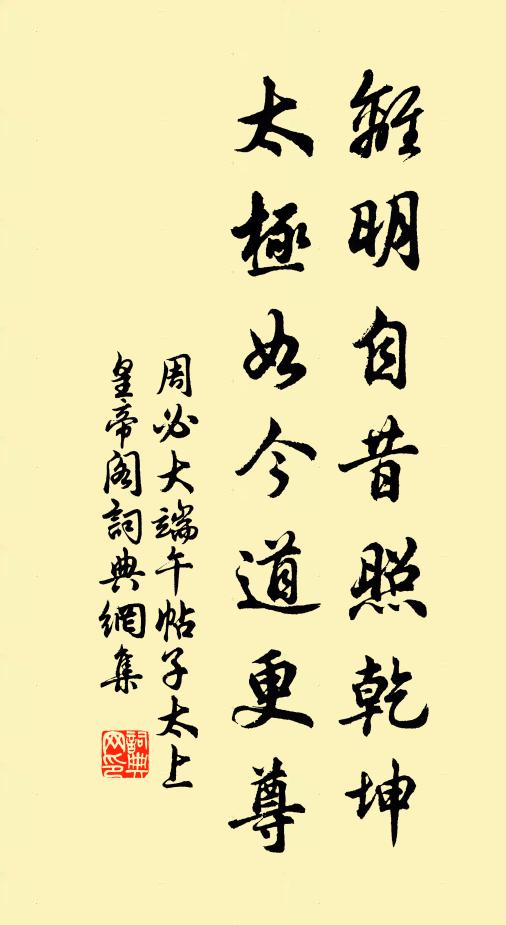 離明自昔照乾坤
太極如今道更尊
周必大端午帖子太上
皇帝閣詞典網集
詞典
网印